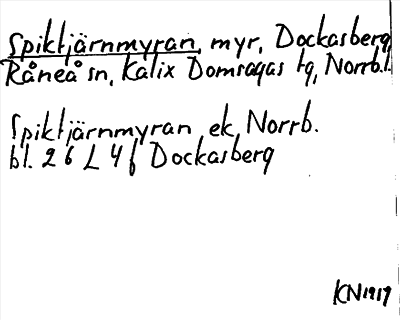 Spiktjärnmyran, myr, Dockasberg
Råneå sn, Kalix Domsagas tg, Norrb.l.
Spiktjärnmyran ek, Norrb.
bl. 26 L 4 f Dockasberg
KN 1919